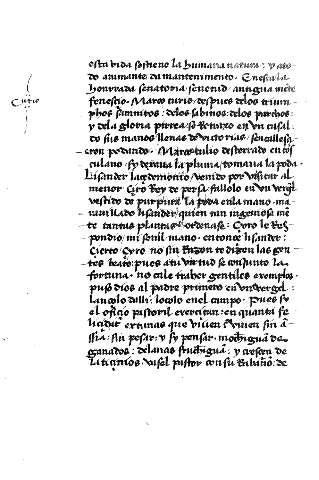 esta vida sostiene la humana natura: y a to
do animante da mantenimento. En esta la
honrrada senatoria senetud antigua mete
fenescio. Marco curio despues delos trium
Curio
phos sannitos: delos sabinos: delos
y dela gloria pirrea se retruxo en vn casal
do sus manos llenas de victorias, senzillas
Marco tulio desterrado en tos
culano, sy dexaua la pluma, tomaua la poda
Lisander lacedemonio venido por visitar al
menor Cyro Rey de persa, fallolo en vn vergel
vestido de purpura la poda enla mano. ma
rauillado lisander: quien tan ingeniosa mete
te tantas plantas ordenase: Cyro le Res
pondio. mi senil mano. entonce lisander:
Cierto Cyro no sin Razon te dizen las gen
tes beato: pues a tu virtud se conjunto la
fortuna. no cale traher gentiles exemplos.
puso dios al padre primero en vn vergel:
lançolo dalli: locolo enel campo. pues sy
el oficio pastoril exercitan: en quanta fe
licidat extimas que viuen? viuen sin an
ssia: sin pesar: y sy pensar. mochigua de
ganados: delanas fruchiguan: y crescen de
Laticinios. vasel pastor con su Rabaño: de